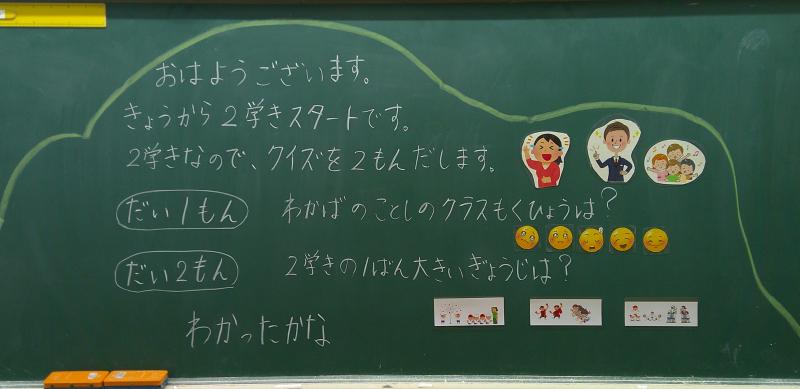 おはようございます。
きょうから2学きスタートです。
2学きなので、クイズを2もんだします。
だい1もん わかばのことしのクラスもくひょうは?
だい2もん 2学きの1ばん大きいぎょうじは?
わかったかな